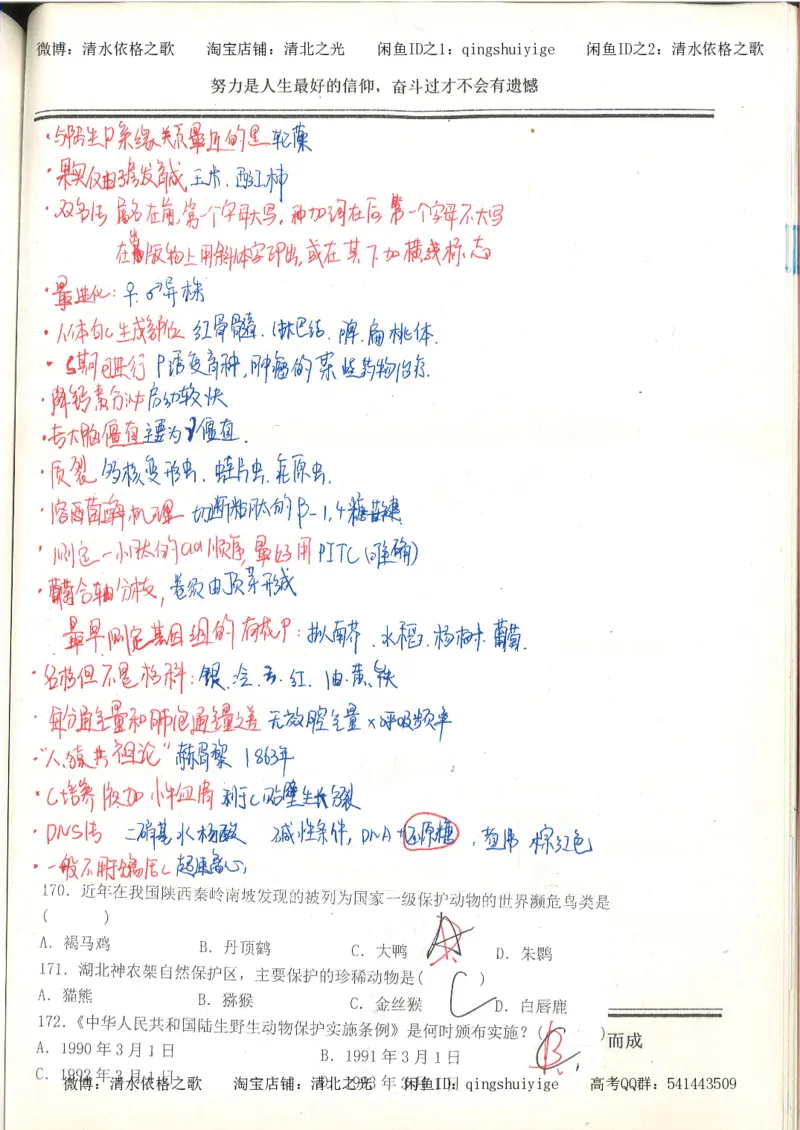 微博：清水依格之歌 淘宝店铺：清北之光 闲鱼ID之1：qingshuiyige 闲鱼ID之2：清水依格之歌
努力是人生最好的信仰，奋斗过才不会有遗憾
·与陆生P亲缘关系最近的是 轮藻
·果实仅由子房发育成 玉米、西红柿
·双名法 属名在前,第一个字母大写,种加词在后 第一个字母不大写
在出版物上用斜体字印出,或在其下加横线标志
·最进化:♀.♂异株
·人体白C生成部位 红骨髓.淋巴结.脾.扁桃体.
·S期可进行 P诱变育种,肿瘤的某些药物治疗.
·降钙素分泌 启动较快
·去大脑僵直 主要为γ僵直.
·质裂 多核变形虫.蛙片虫.疟原虫.
·溶菌酶机理 切断粘肽的β-1,4糖苷键
·测定一小肽的aa顺序 最好用PITC(准确)
·葡萄合轴分枝,卷须由顶芽形成
最早测定基因组的有花P:拟南芥.水稻.杨树.葡萄.
·名杉但不是杉科:银.冷.云.红.油.黄.铁
·每分通气量和肺泡通气量之差 无效腔气量×呼吸频率
·"人猿共祖论" 赫胥黎 1863年
·C培养液加小牛血清 利于C贴壁生长分裂
·DNS法 二硝基水杨酸 碱性条件,DNA+还原糖, 棕红色
·一般不用 活C超速离心
170. 近年在我国陕西秦岭南坡发现的被列为国家一级保护动物的世界濒危鸟类是
( )
A. 褐马鸡 B. 丹顶鹤 C. 大鸭 D. 朱鹮
171. 湖北神农架自然保护区，主要保护的珍稀动物是( )
C
A. 猫熊 B. 猕猴 C. 金丝猴 D. 白唇鹿
172.《中华人民共和国陆生野生动物保护实施条例》是何时颁布实施？( )
B
而成
A. 1990年3月1日 B. 1991年3月1日
C. 1992年3月1日 D. 1993年3月1日
微博：清水依格之歌 淘宝店铺：清北之光 闲鱼ID：qingshuiyige 高考QQ群：541443509